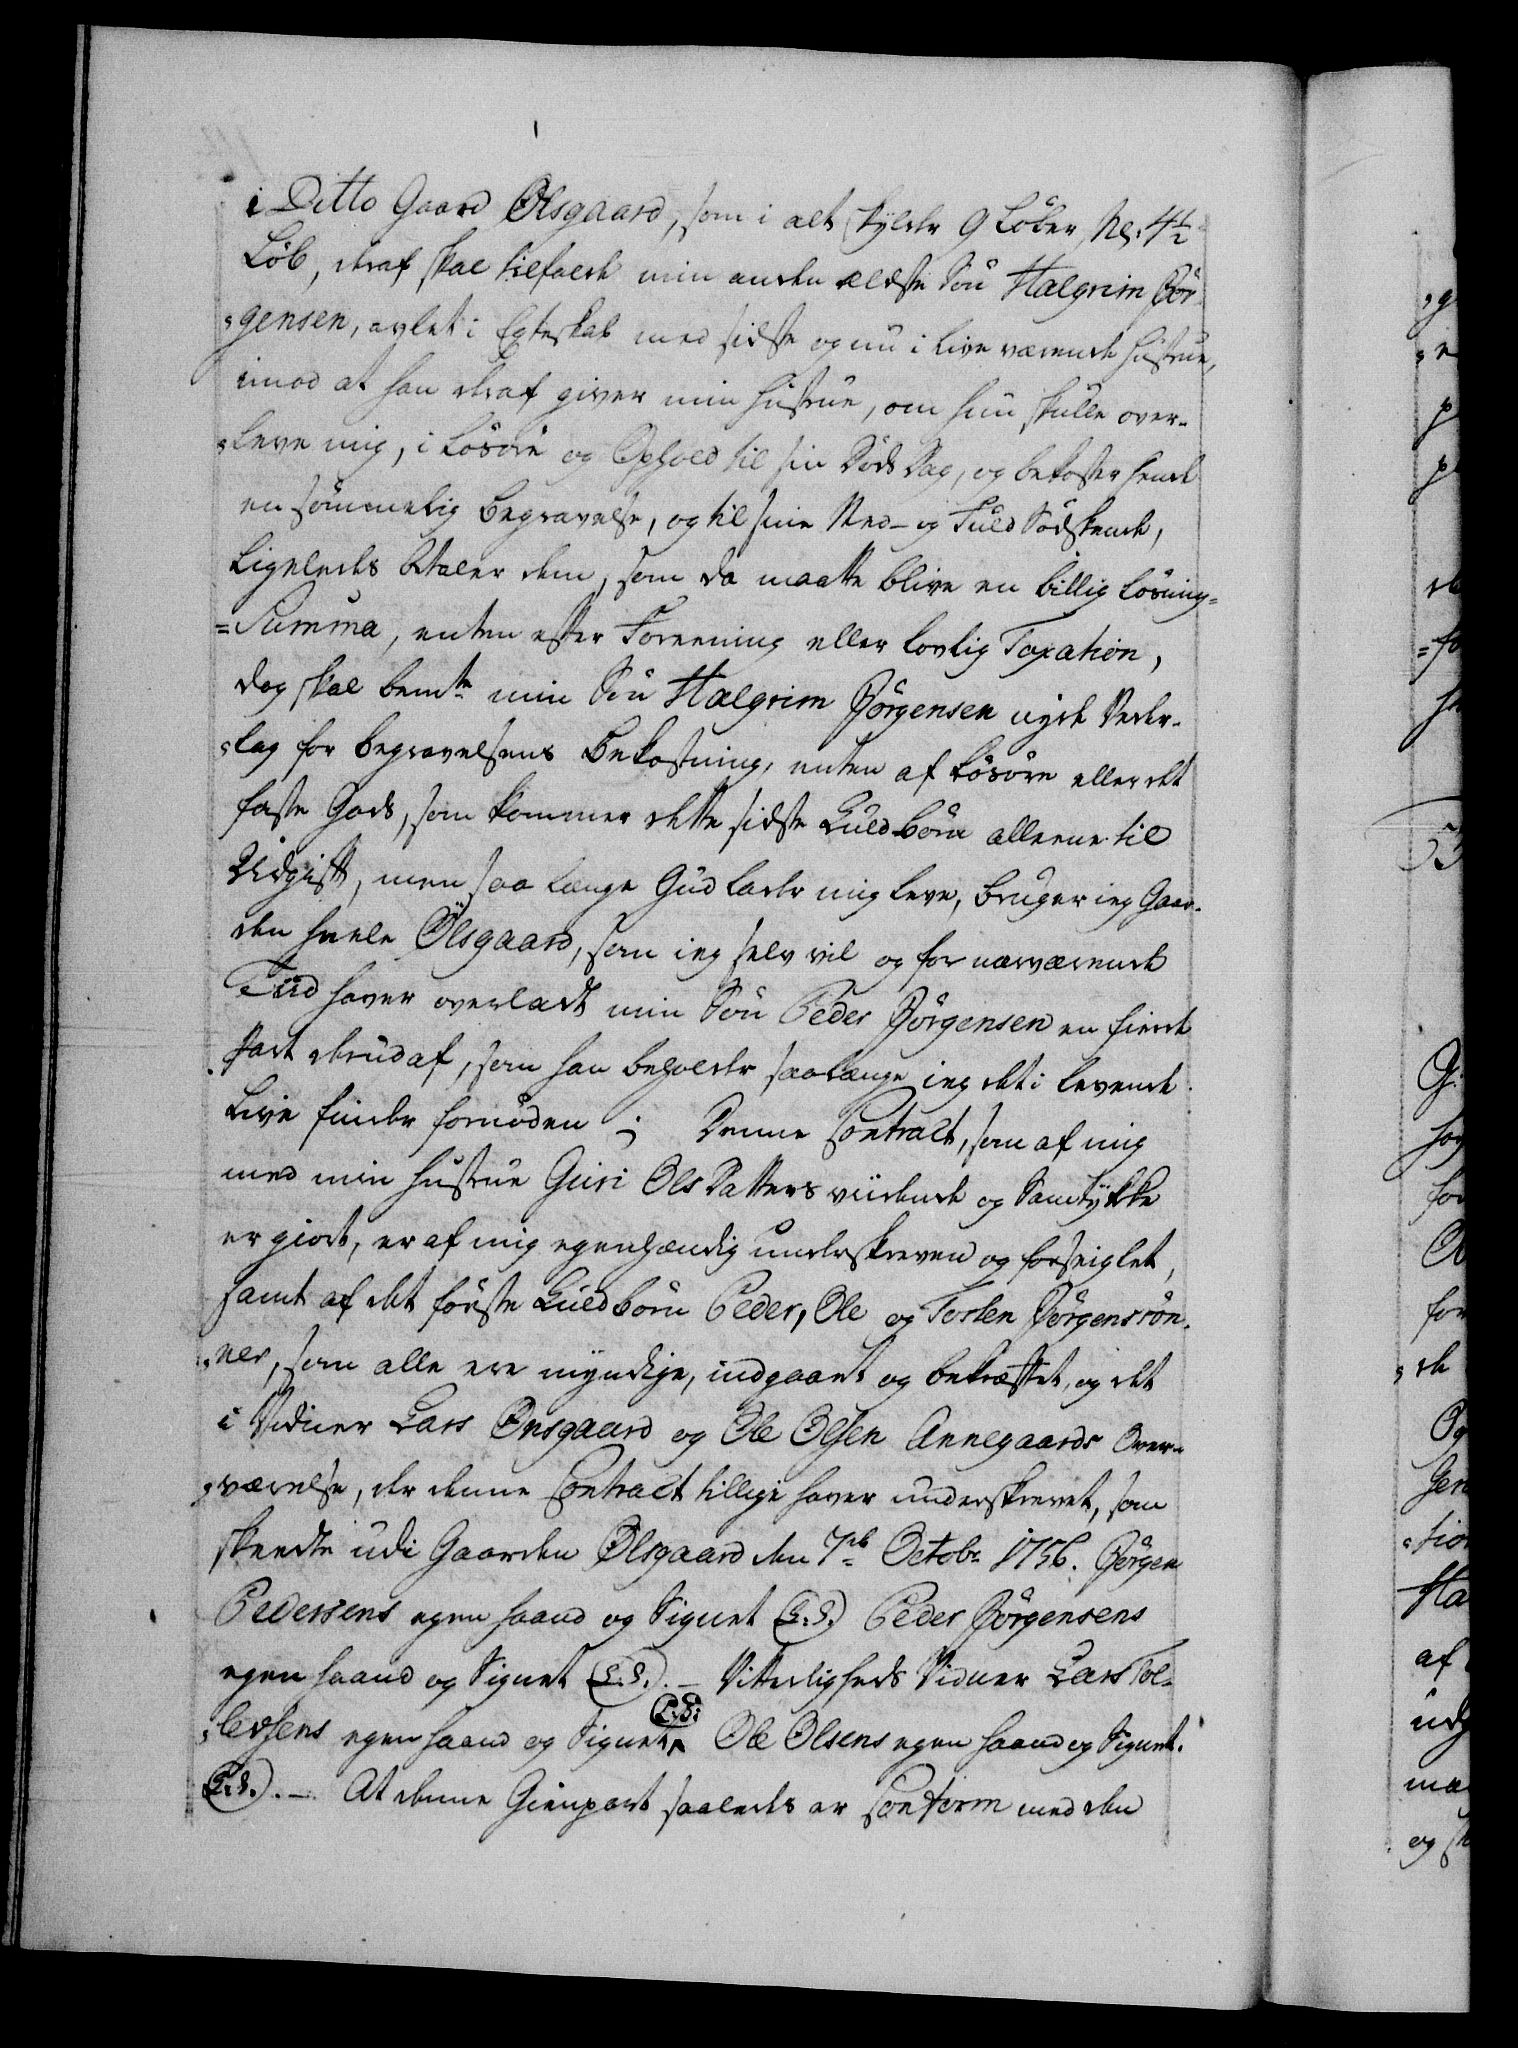 i Ditto Gaard Ølsgaard, som i alt skylder 9 Løber, Nl: 4½
Løb, deraf skal tilfalde min anden ældste Søn Halgrim Jør-
gensen, avlet i Egteskab med sidste og nu i live værende Hustrue,
imod at han deraf giver min Hustrue, om hun skulle over-
leve mig, i Løsøre og Ophold til sin Døds Dag, og bekoster hende
en sømmelig Begravelse, og til sine Med- og Fuld Sødskende,
ligeledes betaler dem, som da maatte blive en billig Løsning-
Summa, enten efter Foreening eller lovlig Taxation,
dog skal bemte min Søn Halgrim Jørgensen nyde Veder-
lag for Begravelsens Bekostning, enten af Løsøre eller det
faste Gods, som kommer dette sidste Kuld Børn alleene til
Udgift, men saa længe Gud lader mig leve, bruger ieg Gaar-
den heele Ølsgaard, som ieg selv vil og for nærværende
Tiid haver overladt min Søn Peder Jørgensen en fierde
Part derudaf, som han beholder saalænge ieg det i levende
Live finder fornøden; Denne Contract, som af mig
med min Hustrue Guri Ols Datters viidende og Samtykke
er giort, er af mig egenhændig underskreven og forseiglet,
samt af det første Kuld Børn Peder, Ole og Torsten Jørgensøn-
ner, som alle ere myndige, indgaaet og bekræftet, og det
i Vidner Lars Ønsgaard og Ole Olsen Annegaards Over-
værelse, der denne Contract tillige haver underskrevet, som
skeedte udi Gaarden Ølsgaard den 7de Octobr 1756. Jørgen
Pedersens egen Haand og Signet (L.S.) Peder Jørgensens
egen Haand og Signet (L.S.). - Vitterligheds Vidner Lars Tol-
levsens egen Haand og Signet (L.S.) Ole Olsens egen Haand og Signet.
(L.S.). - At denne Gienpart saaledes er Conform med den